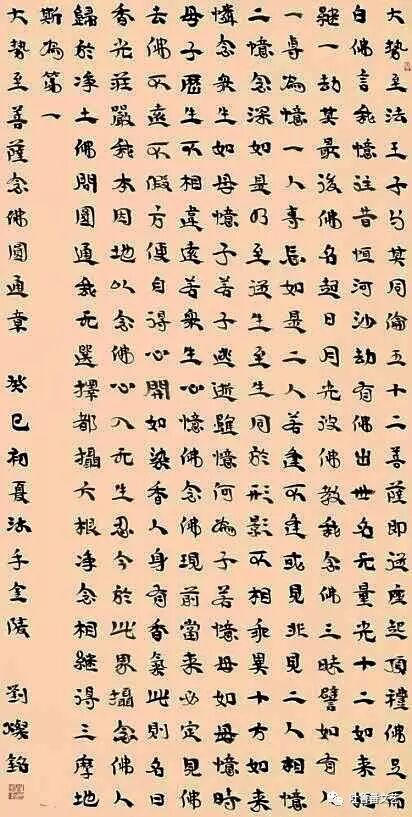 大勢至法王子与其同倫五十二菩薩即從座起頂禮佛足而
白佛言我憶往昔恒河沙劫有佛出世名无量光十二如来相
继一劫其最後佛名超日月光彼佛教我念佛三昧譬如有人
一專為憶一人專忘如是二人若逢不逢或見非見二人相憶
二憶念深如是乃至從生至生同於形影不相乖異十方如来
憐念衆生如母憶子若子逃逝雖憶何為子若憶母如母憶時
母子歷生不相違遠若衆生心憶佛念佛現前當来必定見佛
去佛不遠不假方便自得心開如染香人身有香氣此則名曰
香光莊嚴我本因地以念佛心入无生忍今於此界攝念佛人
歸於净土佛問圓通我无選擇都攝六根净念相继得三摩地
斯為第一
大勢至菩薩念佛圓通章 癸巳初夏法手金陵 劉燦銘